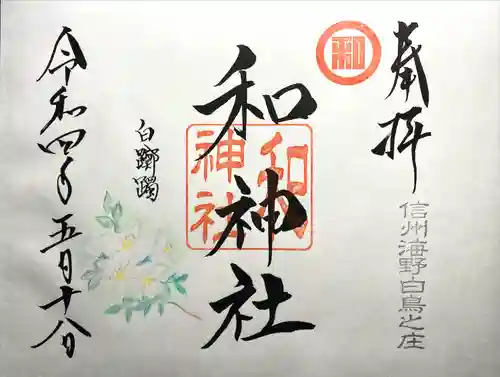 奉拝
和
信州海野白鳥之庄
和神社
和神社
白躑躅
令和四年五月十八日